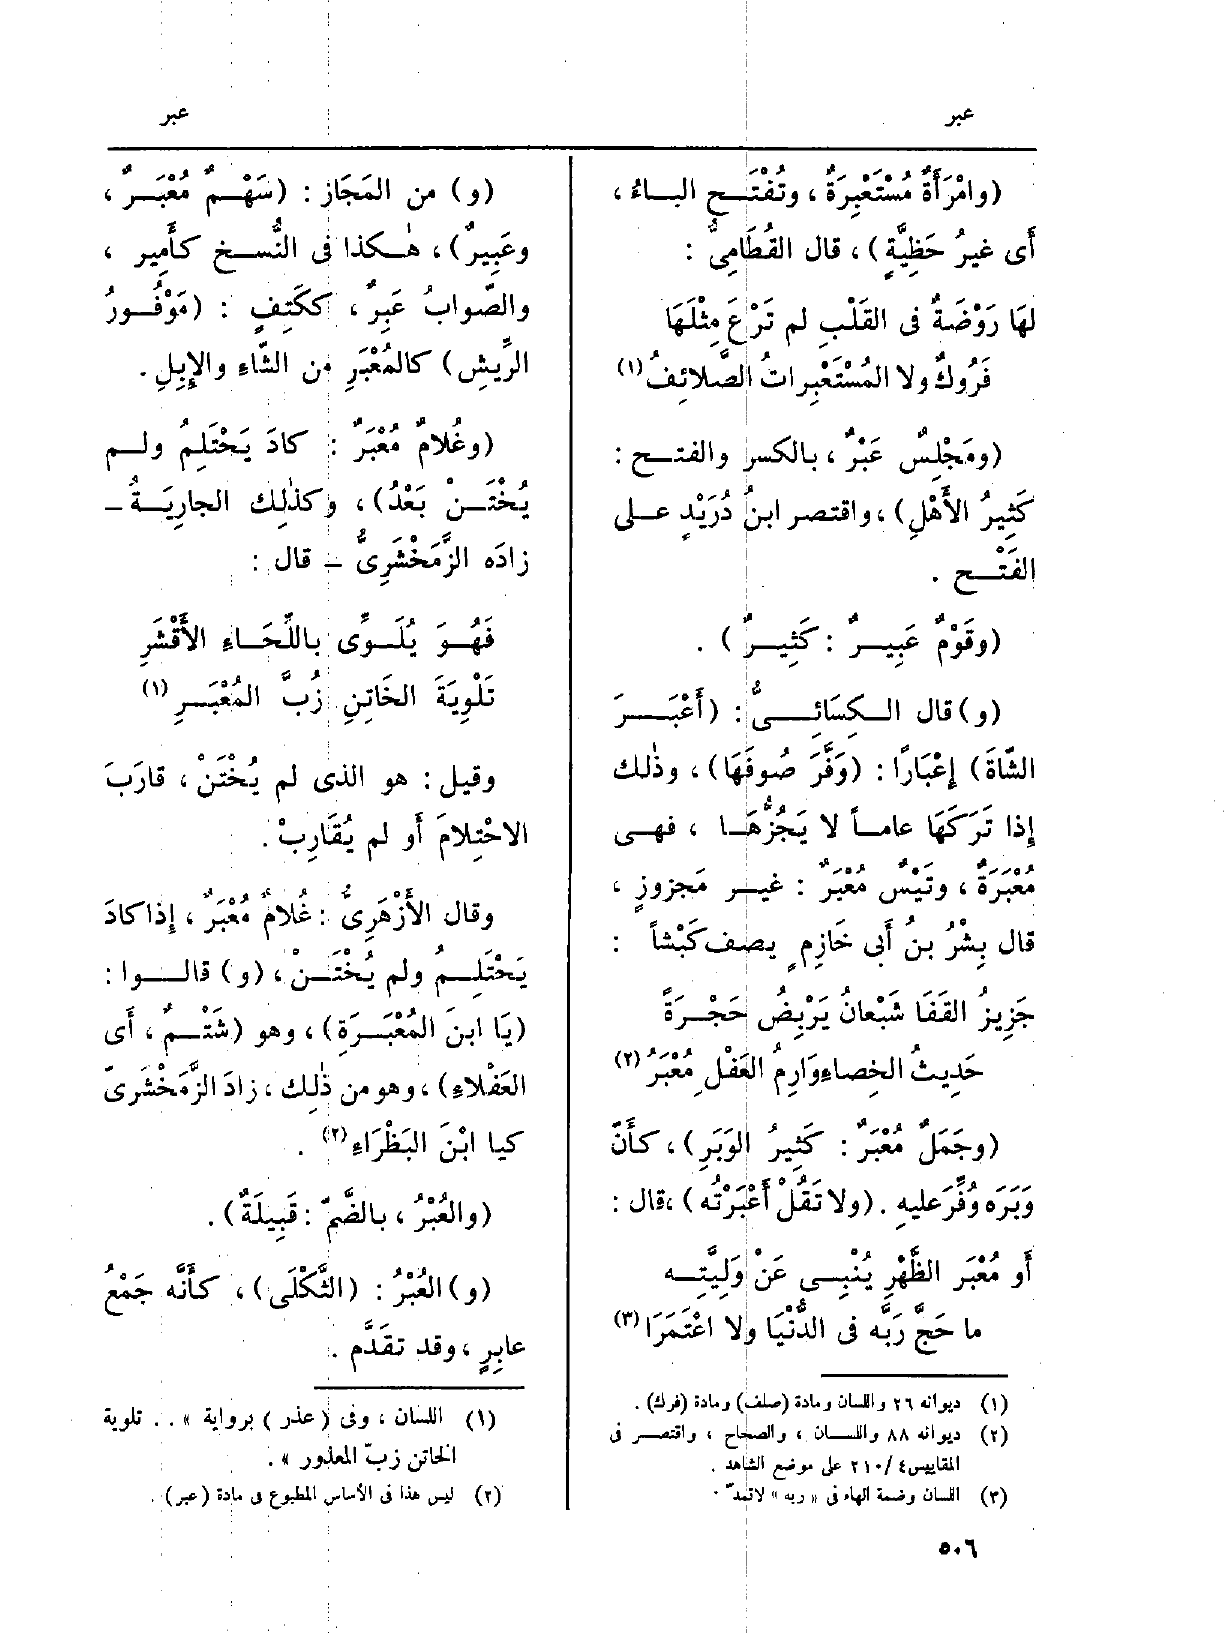 عبر
عبر
(وامْرَأَةٌ مُسْتَعْبِرَةٌ ، وتُفْتَح الباءُ ،
أَى غيرُ حَظِيَّةٍ) ، قال القُطَامِىُّ :
لهَا رَوْضَةٌ فى القَلْبِ لم تَرْعَ مِثْلَهَا
فَرُوكٌ ولا المُسْتَعْبِراتُ الصَّلائِفُ (١)
(ومَجْلِسٌ عَبْرٌ ، بالكسرِ والفتح :
كَثِيرُ الأَهْلِ) ، واقتصر ابنُ دُرَيْدٍ على
الفَتْح .
(وقَوْمٌ عَبِيرٌ : كَثِيرٌ ) .
(و) قال الكِسَائِىُّ : (أَعْبَرَ
الشّاةَ) إِعْبَارًا : (وَفَّرَ صُوفَهَا) ، وذٰلك
إِذا تَرَكَهَا عاماً لا يَجُزُّهَا ، فهى
مُعْبَرَةٌ ، وتَيْسٌ مُعْبَرٌ : غير مَجزوزٍ ،
قال بِشْرُ بنُ أَبى خَازِمٍ يصف كَبْشاً :
جَزِيزُ القَفَا شَبْعانُ يَرْبِضُ حَجْرَةً
حَدِيثُ الخِصاءِ وَارِمُ العَفْلِ مُعْبَرُ (٢)
(وجَمَلٌ مُعْبَرٌ : كَثِيرُ الوَبَرِ) ، كأَنّ
وَبَرَه وُفِّرَ عليهِ . (ولا تَقُلْ أَعْبَرْتُه ) ،قال :
أَو مُعْبَر الظَّهْرِ يُنْبِى عَنْ وَلِيَّتِه
ما حَجَّ رَبَّه فى الدُّنْيَا ولا اعْتَمَرَا (٣)
(١) ديوانه ٢٦ واللسان ومادة (صلف) ومادة (فرك) .
(٢) ديوانه ٨٨ واللسان ، والصحاح ، واقتصر فى
المقاييس ٤/ ٢١٠ على موضع الشاهد .
(٣) اللسان وضمة الهاء فى « ربه » لاتمدّ .
(و) من المَجَاز : (سَهْمٌ مُعْبَرٌ ،
وعَبِيرٌ) ، هٰكذا فى النُّسخ كأَمِير ،
والصّوابُ عَبِرٌ ، ككَتِفٍ : (مَوْفُورُ
الرِّيشِ) كالمُعْبَرِ من الشّاءِ والإِبِلِ .
(وغُلامٌ مُعْبَرٌ : كادَ يَحْتَلِمُ ولم
يُخْتَنْ بَعْدُ) ، وكذٰلِك الجارِيَةُ –
زادَه الزَّمَخْشَرِىُّ – قال :
فَهُوَ يُلَوِّى بِاللِّحَاءِ الأَقْشَرِ
تَلْوِيَةَ الخَاتِنِ زُبَّ المُعْبَرِ (١)
وقيل : هو الذى لم يُخْتَنْ ، قارَبَ
الاحْتِلامَ أَو لم يُقَارِبْ .
وقال الأَزْهَرِىُّ : غُلامٌ مُعْبَرٌ ، إِذا كادَ
يَحْتَلِمُ ولم يُخْتَنْ ، (و) قالوا :
(يَا ابنَ المُعْبَرَةِ) ، وهو (شَتْمٌ ، أَى
العَفْلاءِ) ، وهو من ذٰلِك ، زادَ الزَّمَخْشَرىّ
كيا ابْنَ البَظْرَاءِ (٢) .
(والعُبْرُ ، بالضّمّ : قَبِيلَةٌ) .
(و) العُبْرُ : (الثَّكْلَى) ، كأَنَّه جَمْعُ
عابِرٍ ، وقد تقَدَّم .
(١) اللسان ، وفى (عذر ) برواية « . . تلوية
الخاتن زبّ المعذور » .
(٢) ليس هذا فى الأساس المطبوع فى مادة (عبر) .
٥٠٦